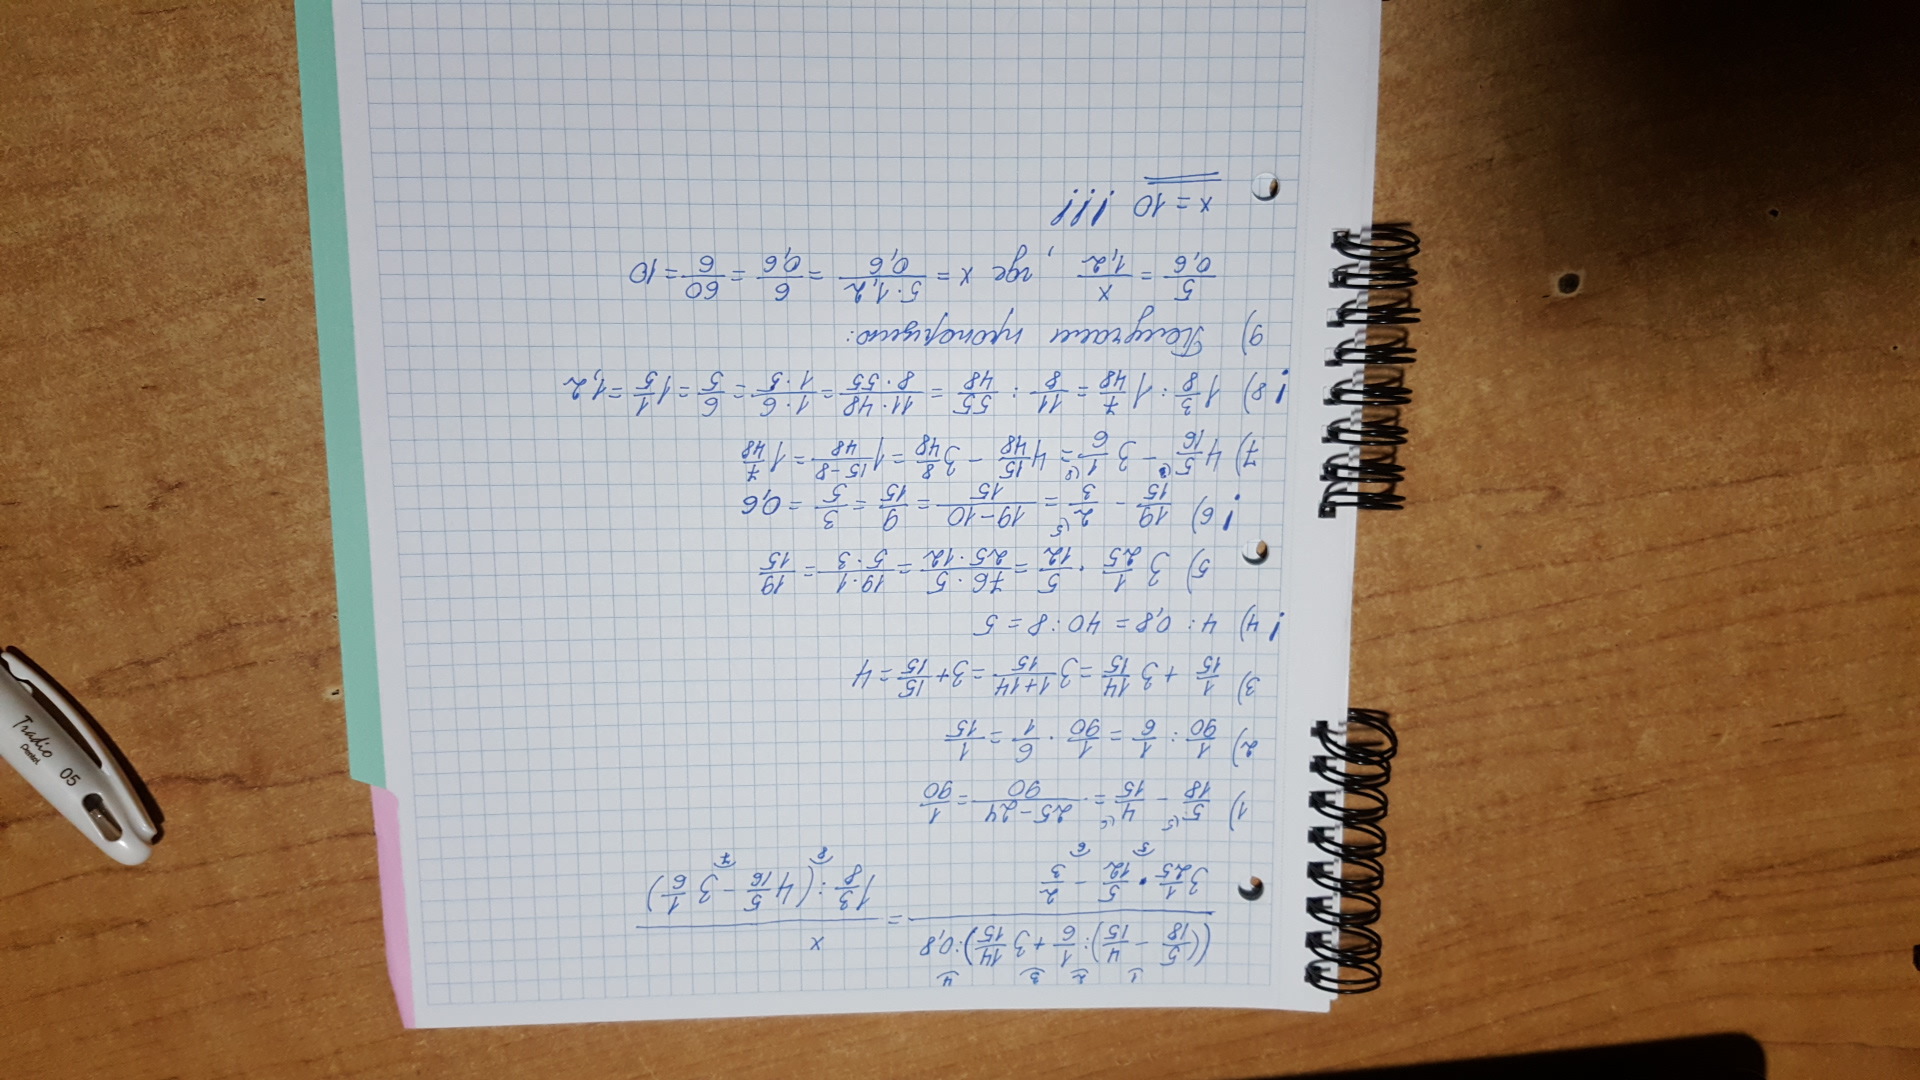 ((5/18 - 4/15) : 1/6 + 3 14/15) : 0,8 / (3 1/25 · 5/12 - 2/3) = x / (1 3/8 : (4 5/16 - 3 1/6))
1) 5/18 - 4/15 = 25-24/90 = 1/90
2) 1/90 : 1/6 = 1/90 · 6/1 = 1/15
3) 1/15 + 3 14/15 = 3 1+14/15 = 3 + 15/15 = 4
! 4) 4 : 0,8 = 40 : 8 = 5
5) 3 1/25 · 5/12 = 76·5/25·12 = 19·1/5·3 = 19/15
! 6) 19/15 - 2/3 = 19-10/15 = 9/15 = 3/5 = 0,6
7) 4 5/16 - 3 1/6 = 4 15/48 - 3 8/48 = 1 15-8/48 = 1 7/48
! 8) 1 3/8 : 1 7/48 = 11/8 : 55/48 = 11·48/8·55 = 1·6/1·5 = 6/5 = 1 1/5 = 1,2
9) Получаем пропорцию:
5/0,6 = x/1,2 , где x = 5·1,2/0,6 = 6/0,6 = 60/6 = 10
x = 10 !!!
Tradio
Pentel
05